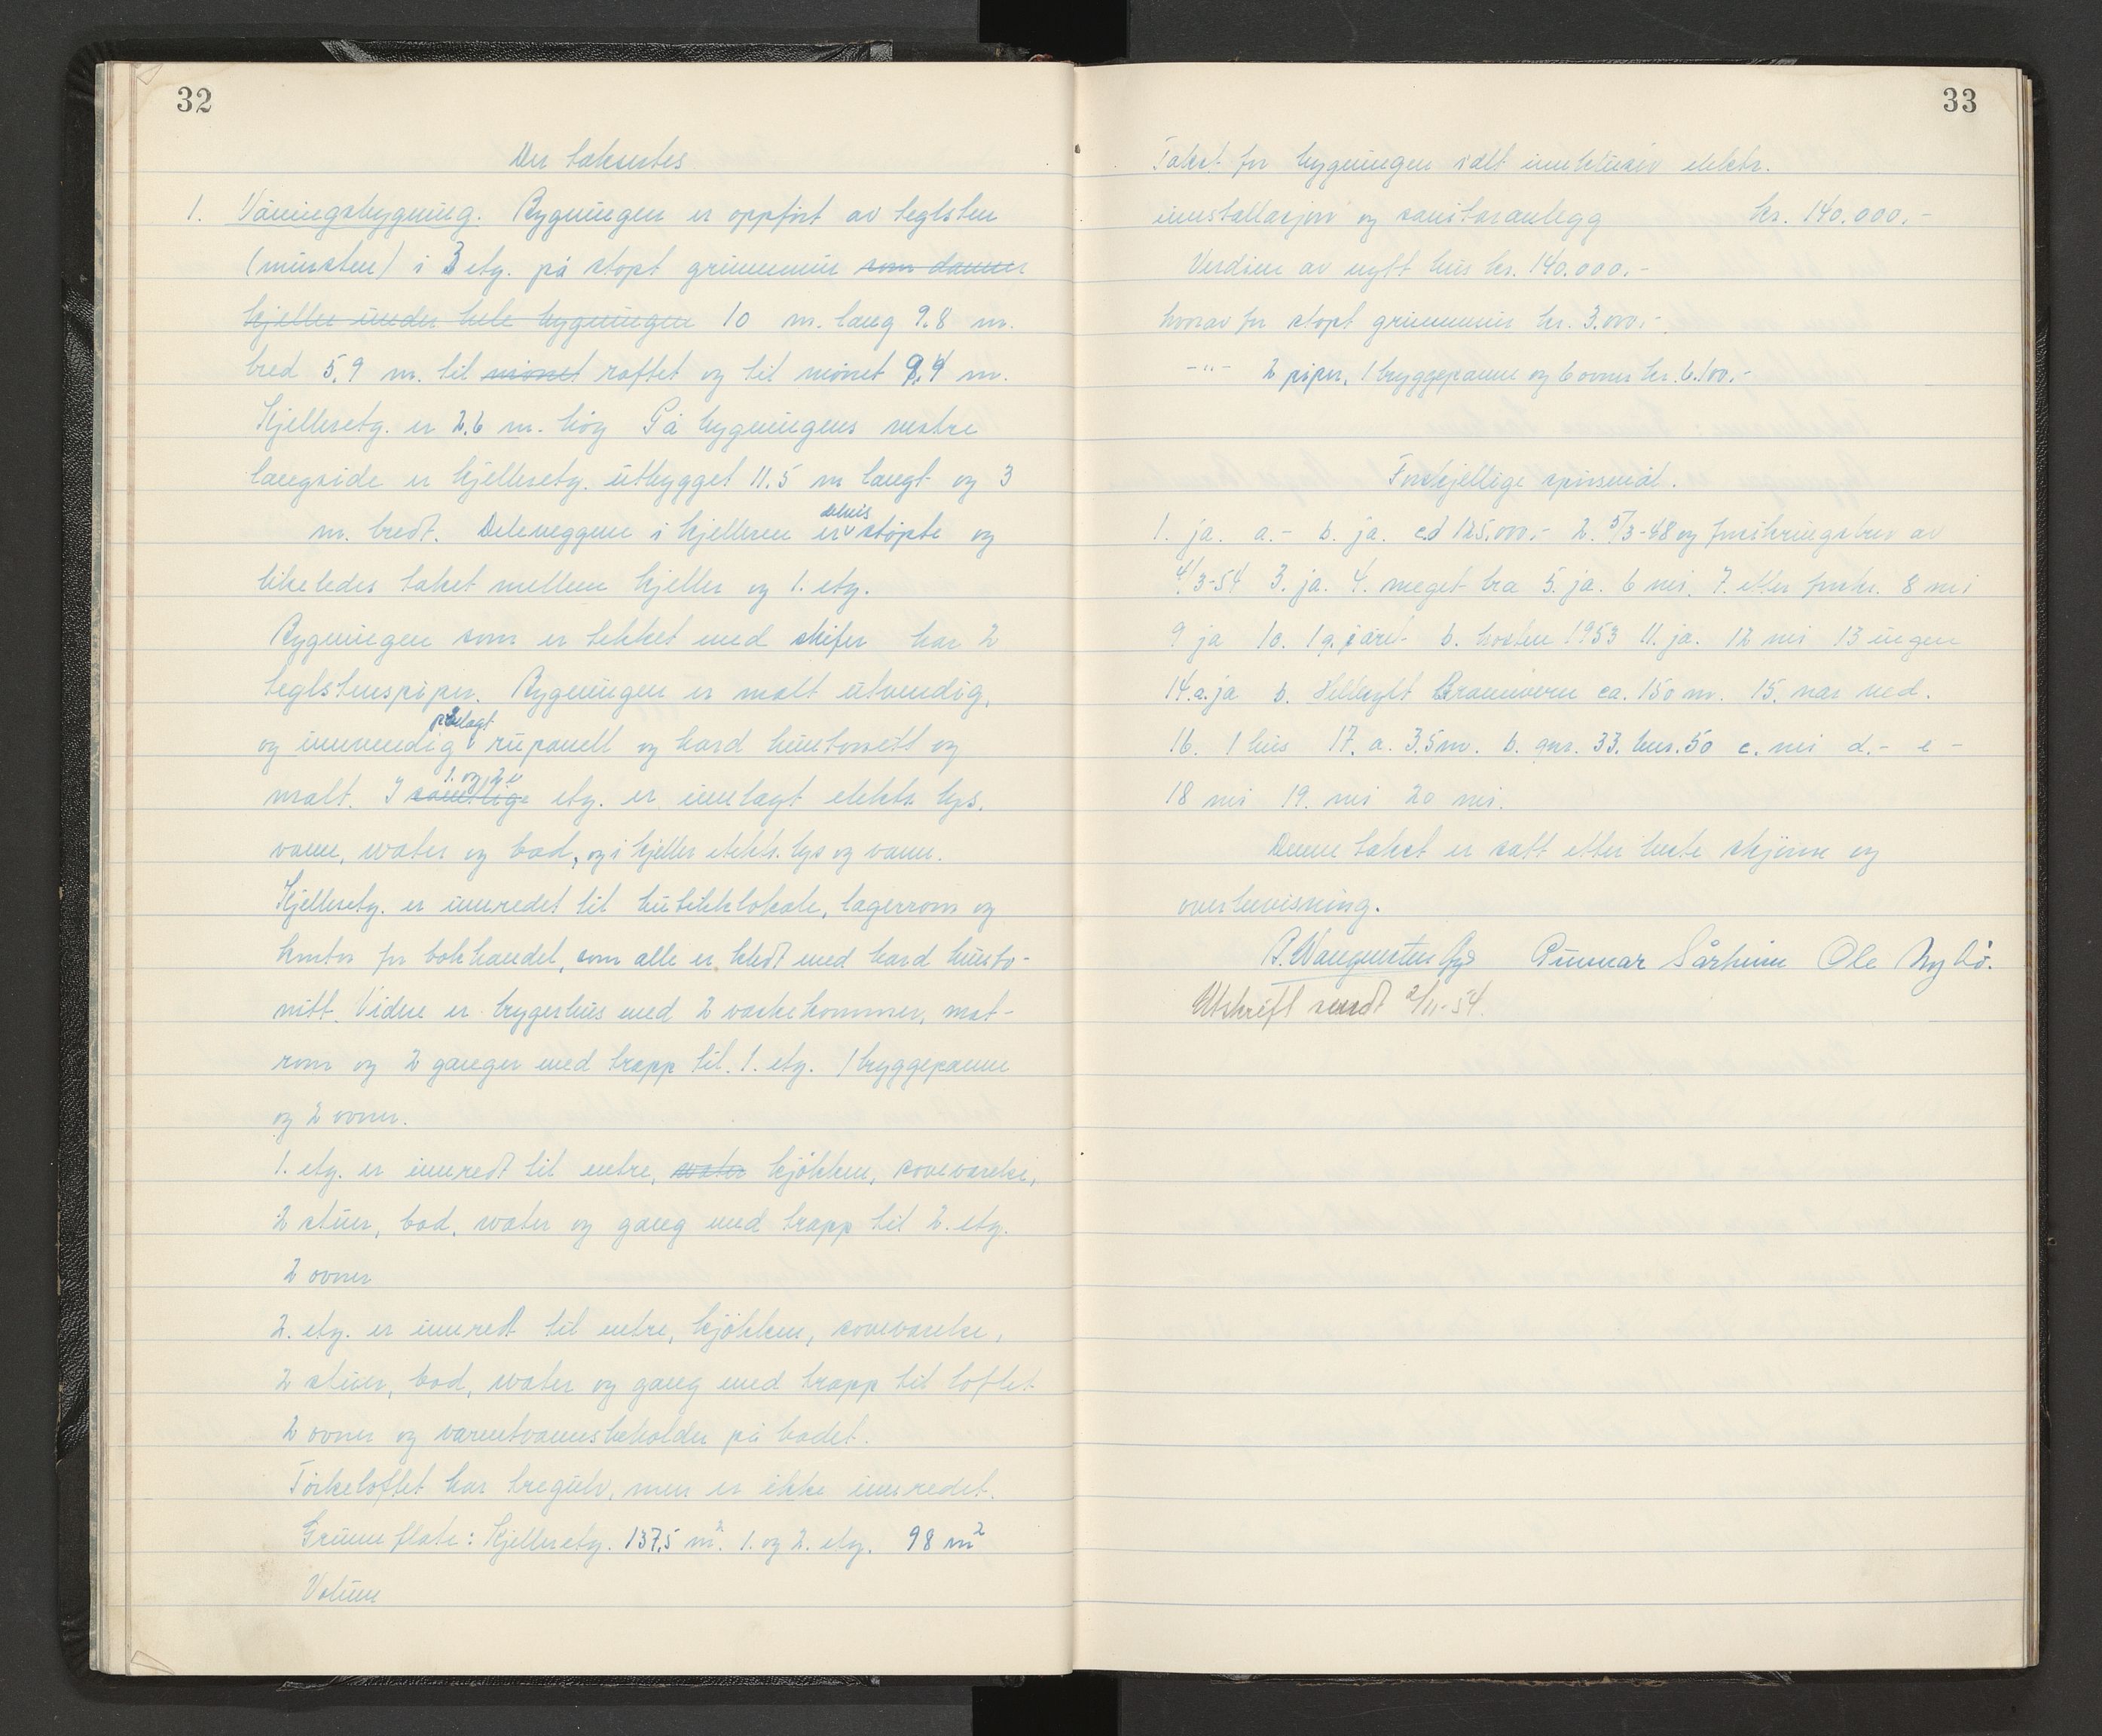 32
Der taksertes
1. Våningsbygning. Bygningen er oppført av teglsten
(mursten) i 3 etg. på støpt grunnmur som danner
kjeller under hele bygningen 10 m. lang 9.8 m.
bred 5.9 m. til mønet røftet og til mønet 9.4 m.
Kjelleretg. er 2.6 m. høg På bygningens vestre
langside er kjelleretg. utbygget 11.5 m langt og 3
m. bredt. Deleveggene i kjelleren er delvis støpte og
likeledes taket mellem kjeller og 1. etg.
Bygningen som er tekket med skifer har 2
teglstenspiper. Bygningen er malt utvendig,
og innvendig pålagt rupanell og hard huntonitt og
malt. I samtlige 1. og 2 etg. er innlagt elektr. lys,
vann, water og bad, og i kjeller elektr. lys og vann.
Kjelleretg. er innredet til butikklokale, lagerrom og
kontor for bokhandel, som alle er kledt med hard hunto-
nitt. Videre er bryggerhus med 2 vaskekommer, mat-
rom og 2 ganger med trapp til 1. etg. 1 bryggepanne
og 2 ovner.
1. etg. er innredt til entre, water kjøkken, soveværelse,
2 stuer, bad, water og gang med trapp til 2. etg.
2 ovner
2. etg. er innredt til entre, kjøkken, soveværelse,
2 stuer, bad, water og gang med trapp til loftet
2 ovner og varmtvannsbeholder på badet.
Tørkeloftet har tregulv, men er ikke innredet.
Grunnflate: Kjelleretg. 137,5 m². 1. og 2. etg. 98 m²
Volum
33
Takst for bygningen ialt innklusiv elektr.
innstallasjon og sanitæranlegg kr. 140.000.-
Verdien av nytt hus kr. 140.000.-
hvorav for støpt grunnmur kr. 3.000.-
-"- 2 piper, 1 bryggepanne og 6 ovner kr. 6.100.-
Forskjellige spørsmål.
1. ja. a.- b. ja. cd 125.000.- 2. 5/3-48 og forsikringsbrev av
4/3-54 3. ja. 4. meget bra 5. ja. 6 nei. 7. etter forskr. 8 nei
9 ja 10. 1 g. i året b. høsten 1953 11. ja. 12 nei 13 ingen
14. a. ja b. Hellesylt Brannvern ca. 150 m. 15. nær ved.
16. 1 hus 17. a. 3.5 m. b. gnr. 33. bnr. 50 c. nei d.- e -
18 nei 19. nei 20 nei.
Denne takst er satt etter beste skjønn og
overbevisning.
Gunnar Ole
Utskrift sendt 2/11-54.